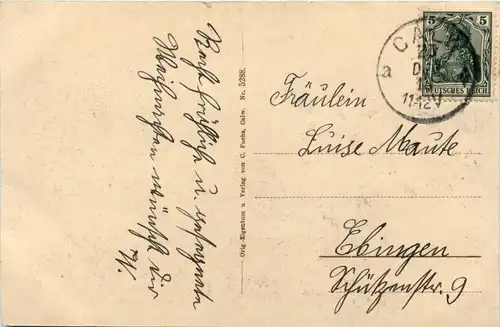 Recht fröhliche u. gesegnete
Weihnachten wünscht Dir
W.
Orig.-Eigentum u. Verlag von C. Fuchs, Calw. Nr. 5288.
5 5
DEUTSCHES REICH
CALW
a
11-12V
Fräulein
Luise Maute
Ebingen
Schützenstr. 9